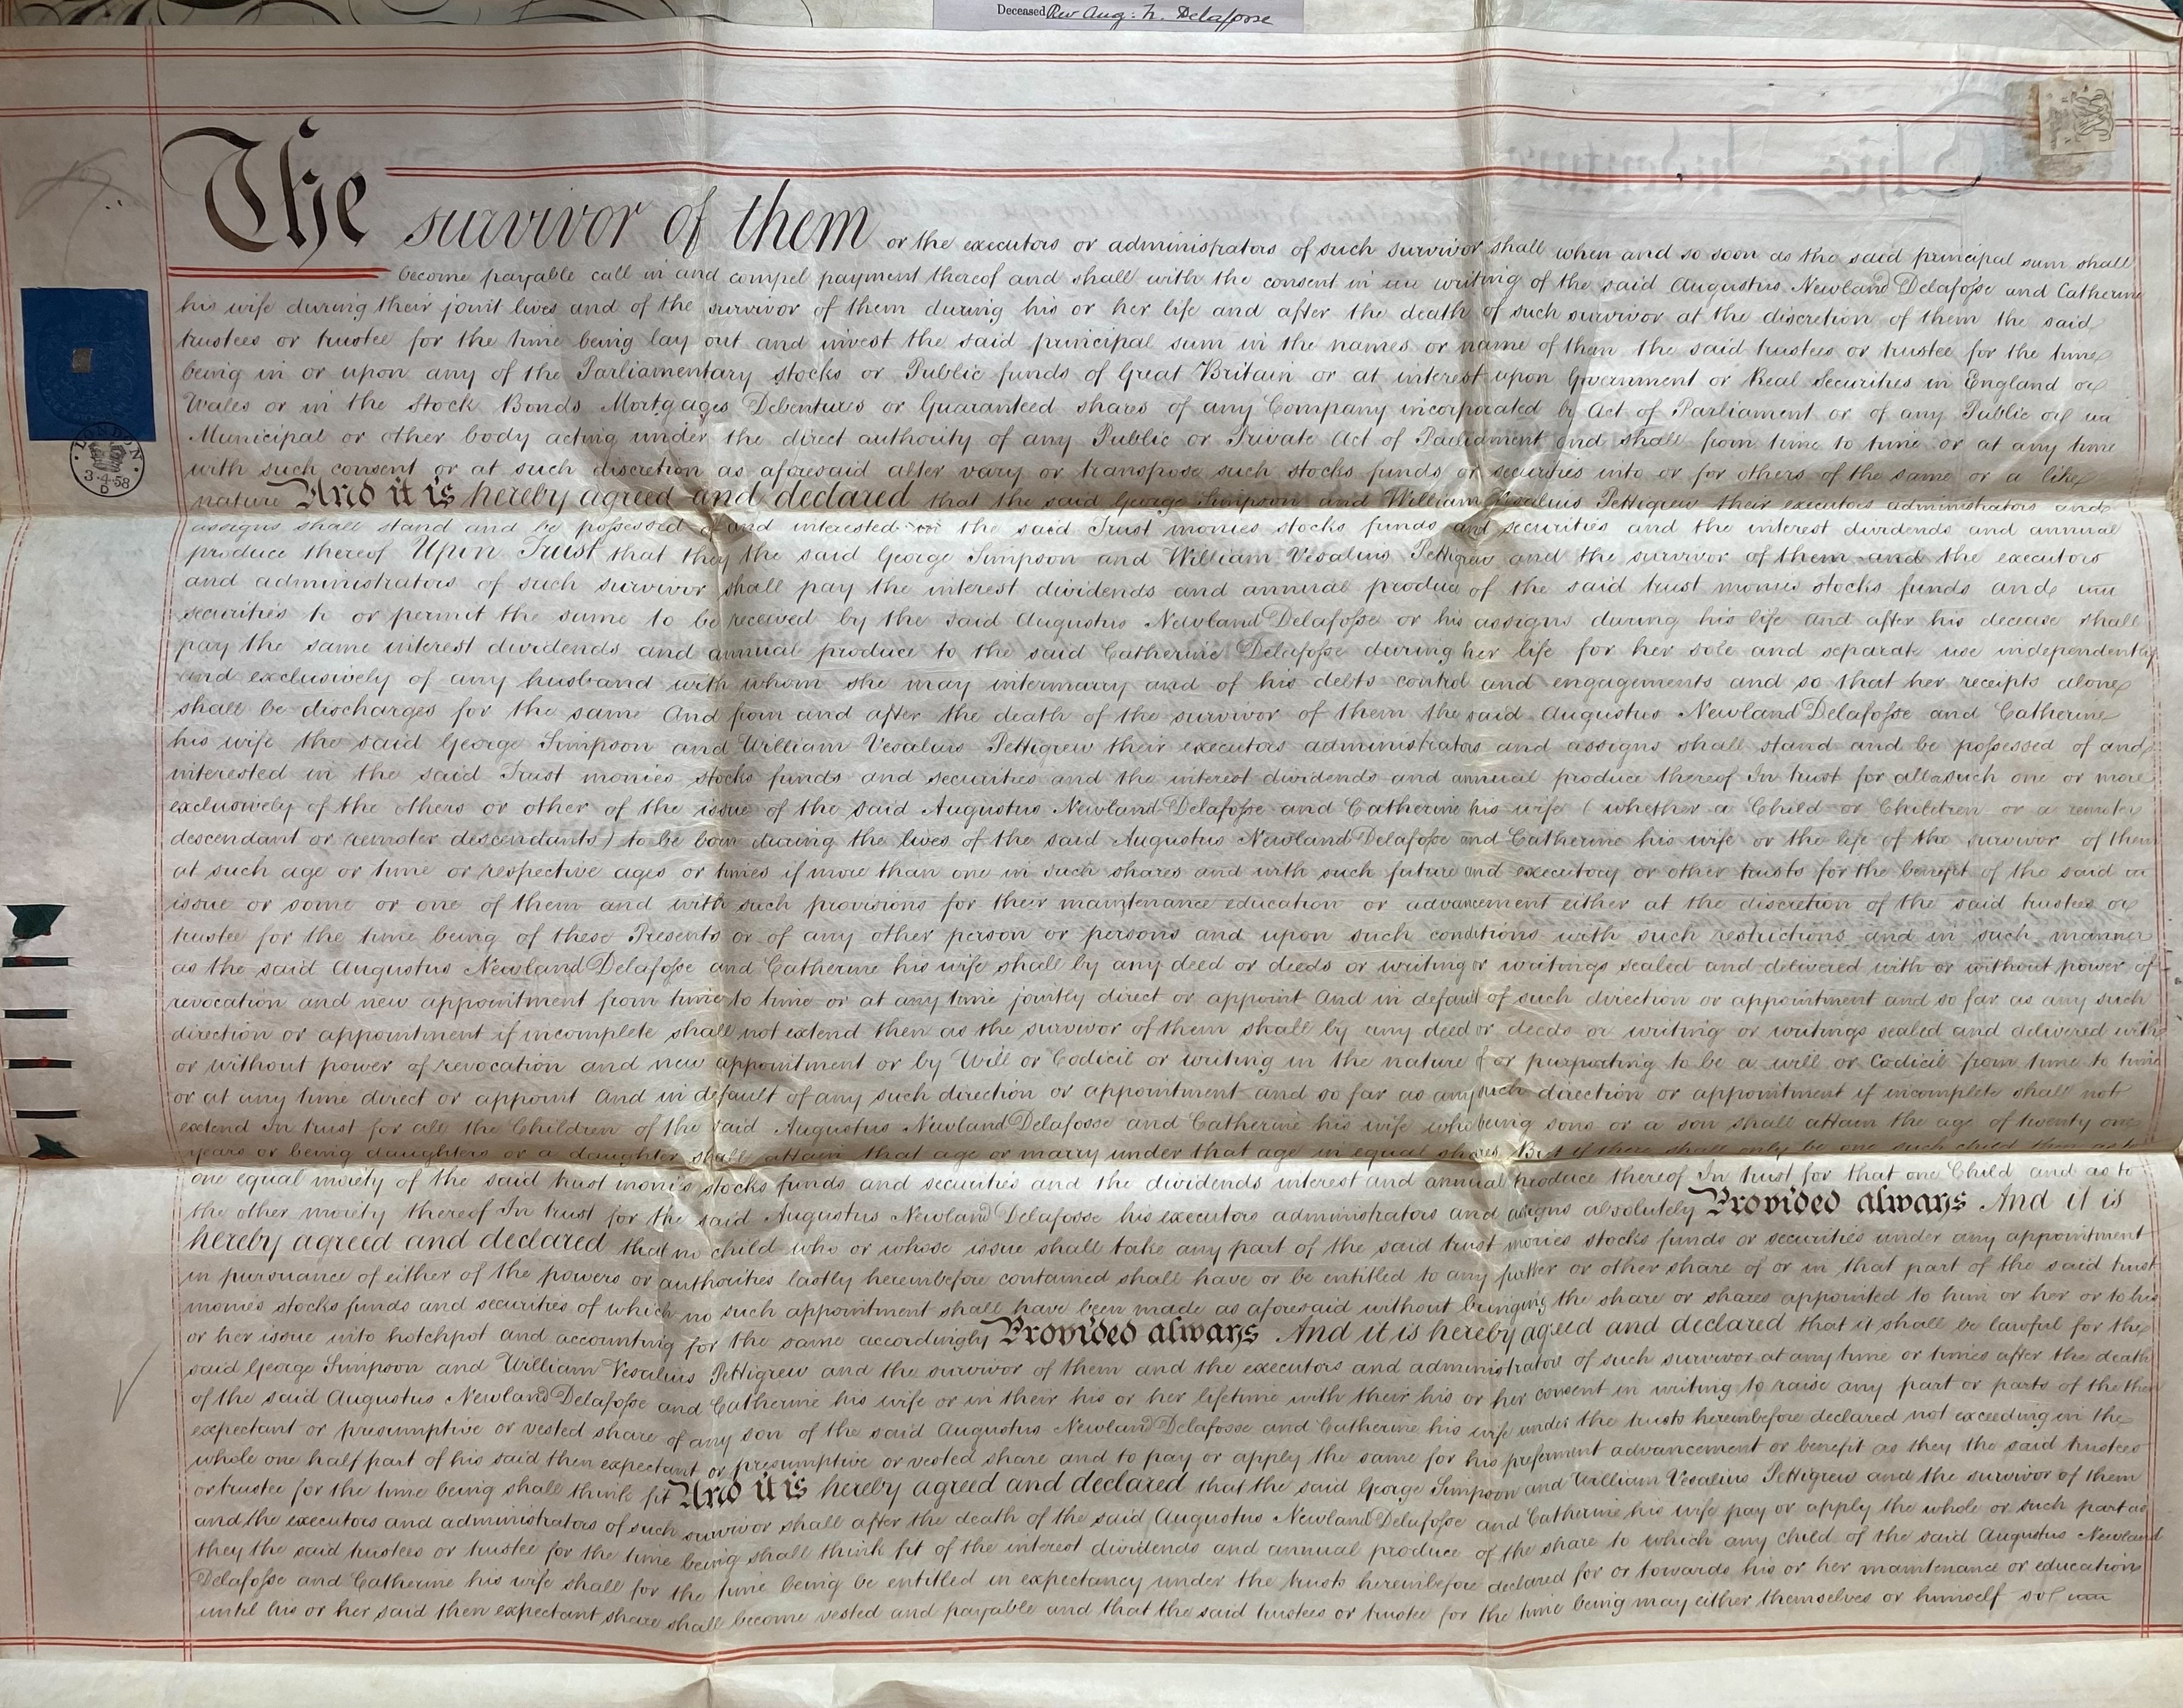 Deceased Rev Aug: N. Delafosse
The survivor of them or the executors or administrators of such survivor shall when and so soon as the said principal sum shall
become payable call in and compel payment thereof and shall with the consent in writing of the said Augustus Newland Delafosse and Catherine
his wife during their joint lives and of the survivor of them during his or her life and after the death of such survivor at the discretion of them the said
trustees or trustee for the time being lay out and invest the said principal sum in the names or name of them the said trustees or trustee for the time
being in or upon any of the Parliamentary stocks or Public funds of Great Britain or at interest upon Government or Real Securities in England or
Wales or in the Stock Bonds Mortgages Debentures or Guaranteed shares of any Company incorporated by Act of Parliament or of any Public or
Municipal or other body acting under the direct authority of any Public or Private Act of Parliament and shall from time to time or at any time
with such consent or at such discretion as aforesaid alter vary or transpose such stocks funds or securities into or for others of the same or a like
nature And it is hereby agreed and declared that the said George Simpson and William Vesalius Pettigrew their executors administrators and
assigns shall stand and be possessed of and interested in the said Trust monies stocks funds and securities and the interest dividends and annual
produce thereof Upon Trust that they the said George Simpson and William Vesalius Pettigrew and the survivor of them and the executors
and administrators of such survivor shall pay the interest dividends and annual produce of the said trust monies stocks funds and
securities to or permit the same to be received by the said Augustus Newland Delafosse or his assigns during his life and after his decease shall
pay the same interest dividends and annual produce to the said Catherine Delafosse during her life for her sole and separate use independently
and exclusively of any husband with whom she may intermarry and of his debts control and engagements and so that her receipts alone
shall be discharges for the same And from and after the death of the survivor of them the said Augustus Newland Delafosse and Catherine
his wife the said George Simpson and William Vesalius Pettigrew their executors administrators and assigns shall stand and be possessed of and
interested in the said Trust monies stocks funds and securities and the interest dividends and annual produce thereof In trust for all such one or more
exclusively of the others or other of the issue of the said Augustus Newland Delafosse and Catherine his wife (whether a Child or Children or a remoter
descendant or remoter descendants) to be born during the lives of the said Augustus Newland Delafosse and Catherine his wife or the life of the survivor of them
at such age or time or respective ages or times if more than one in such shares and with such future and executory or other trusts for the benefit of the said
issue or some or one of them and with such provisions for their maintenance education or advancement either at the discretion of the said trustees or
trustee for the time being of these Presents or of any other person or persons and upon such conditions with such restrictions and in such manner
as the said Augustus Newland Delafosse and Catherine his wife shall by any deed or deeds or writing or writings sealed and delivered with or without power of
revocation and new appointment from time to time or at any time jointly direct or appoint And in default of such direction or appointment and so far as any such
direction or appointment if incomplete shall not extend then as the survivor of them shall by any deed or deeds or writing or writings sealed and delivered with
or without power of revocation and new appointment or by Will or Codicil or writing in the nature of or purporting to be a will or Codicil from time to time
or at any time direct or appoint And in default of any such direction or appointment and so far as any such direction or appointment if incomplete shall not
extend In trust for all the Children of the said Augustus Newland Delafosse and Catherine his wife who being sons or a son shall attain the age of twenty one
years or being daughters or a daughter shall attain that age or marry under that age in equal shares But if there shall only be one such child then as to
one equal moiety of the said trust monies stocks funds and securities and the dividends interest and annual produce thereof In trust for that one Child and as to
the other moiety thereof In trust for the said Augustus Newland Delafosse his executors administrators and assigns absolutely Provided always And it is
hereby agreed and declared that no child who or whose issue shall take any part of the said trust monies stocks funds or securities under any appointment
in pursuance of either of the powers or authorities lastly hereinbefore contained shall have or be entitled to any further or other share of or in that part of the said trust
monies stocks funds and securities of which no such appointment shall have been made as aforesaid without bringing the share or shares appointed to him or her or to his
or her issue into hotchpot and accounting for the same accordingly Provided always And it is hereby agreed and declared that it shall be lawful for the
said George Simpson and William Vesalius Pettigrew and the survivor of them and the executors and administrators of such survivor at any time or times after the death
of the said Augustus Newland Delafosse and Catherine his wife or in their his or her lifetime with their his or her consent in writing to raise any part or parts of the then
expectant or presumptive or vested share of any son of the said Augustus Newland Delafosse and Catherine his wife under the trusts hereinbefore declared not exceeding in the
whole one half part of his said then expectant or presumptive or vested share and to pay or apply the same for his preferment advancement or benefit as they the said trustees
or trustee for the time being shall think fit And it is hereby agreed and declared that the said George Simpson and William Vesalius Pettigrew and the survivor of them
and the executors and administrators of such survivor shall after the death of the said Augustus Newland Delafosse and Catherine his wife pay or apply the whole or such part as
they the said trustees or trustee for the time being shall think fit of the interest dividends and annual produce of the share to which any child of the said Augustus Newland
Delafosse and Catherine his wife shall for the time being be entitled in expectancy under the trusts hereinbefore declared for or towards his or her maintenance or education
until his or her said then expectant share shall become vested and payable and that the said trustees or trustee for the time being may either themselves or himself so
LONDON
3·4·58
D